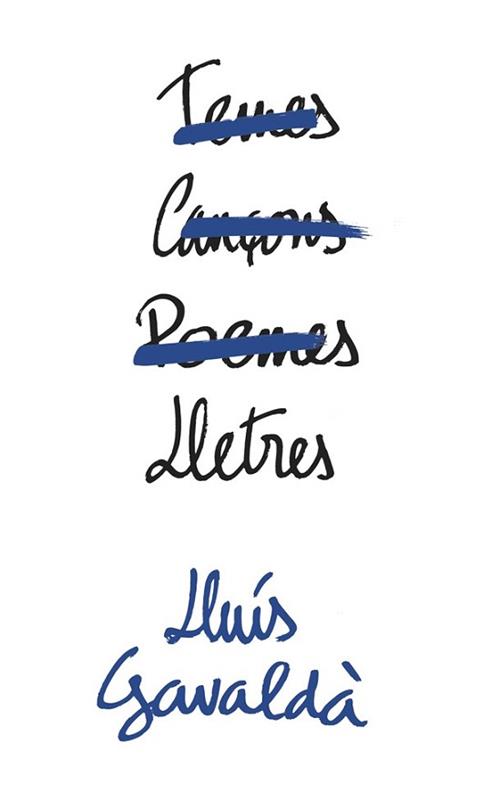 Temes
Cançons
Poemes
Lletres
Lluís
Gavaldà